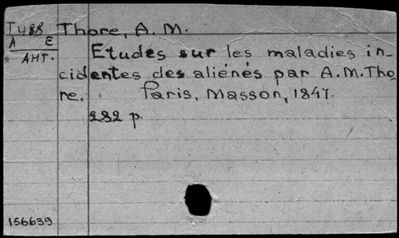 Thore, A. M.
A E
AHT.
Etudes sur les maladies in-
cidentes des aliénés par A.M.Tho-
re. Paris, Masson, 1847.
282 p.
156639